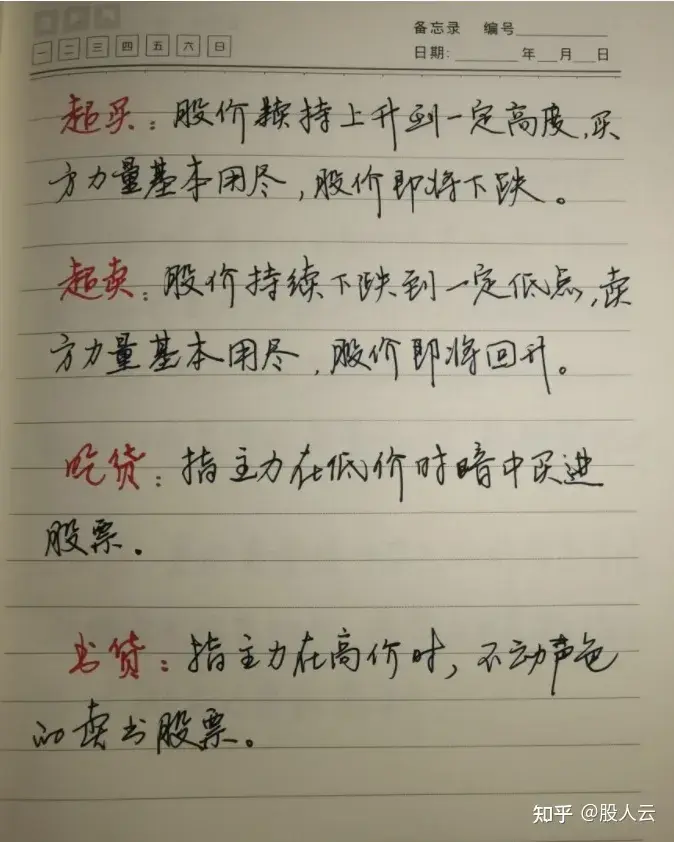 备忘录 编号
一 二 三 四 五 六 日
日期: 年 月 日
超买：股价续持上升到一定高度,买
方力量基本用尽,股价即将下跌。
超卖：股价持续下跌到一定低点,卖
方力量基本用尽,股价即将回升。
吃货：指主力在低价时暗中买进
股票。
出货：指主力在高价时,不动声色
的卖出股票。
知乎 @股人云